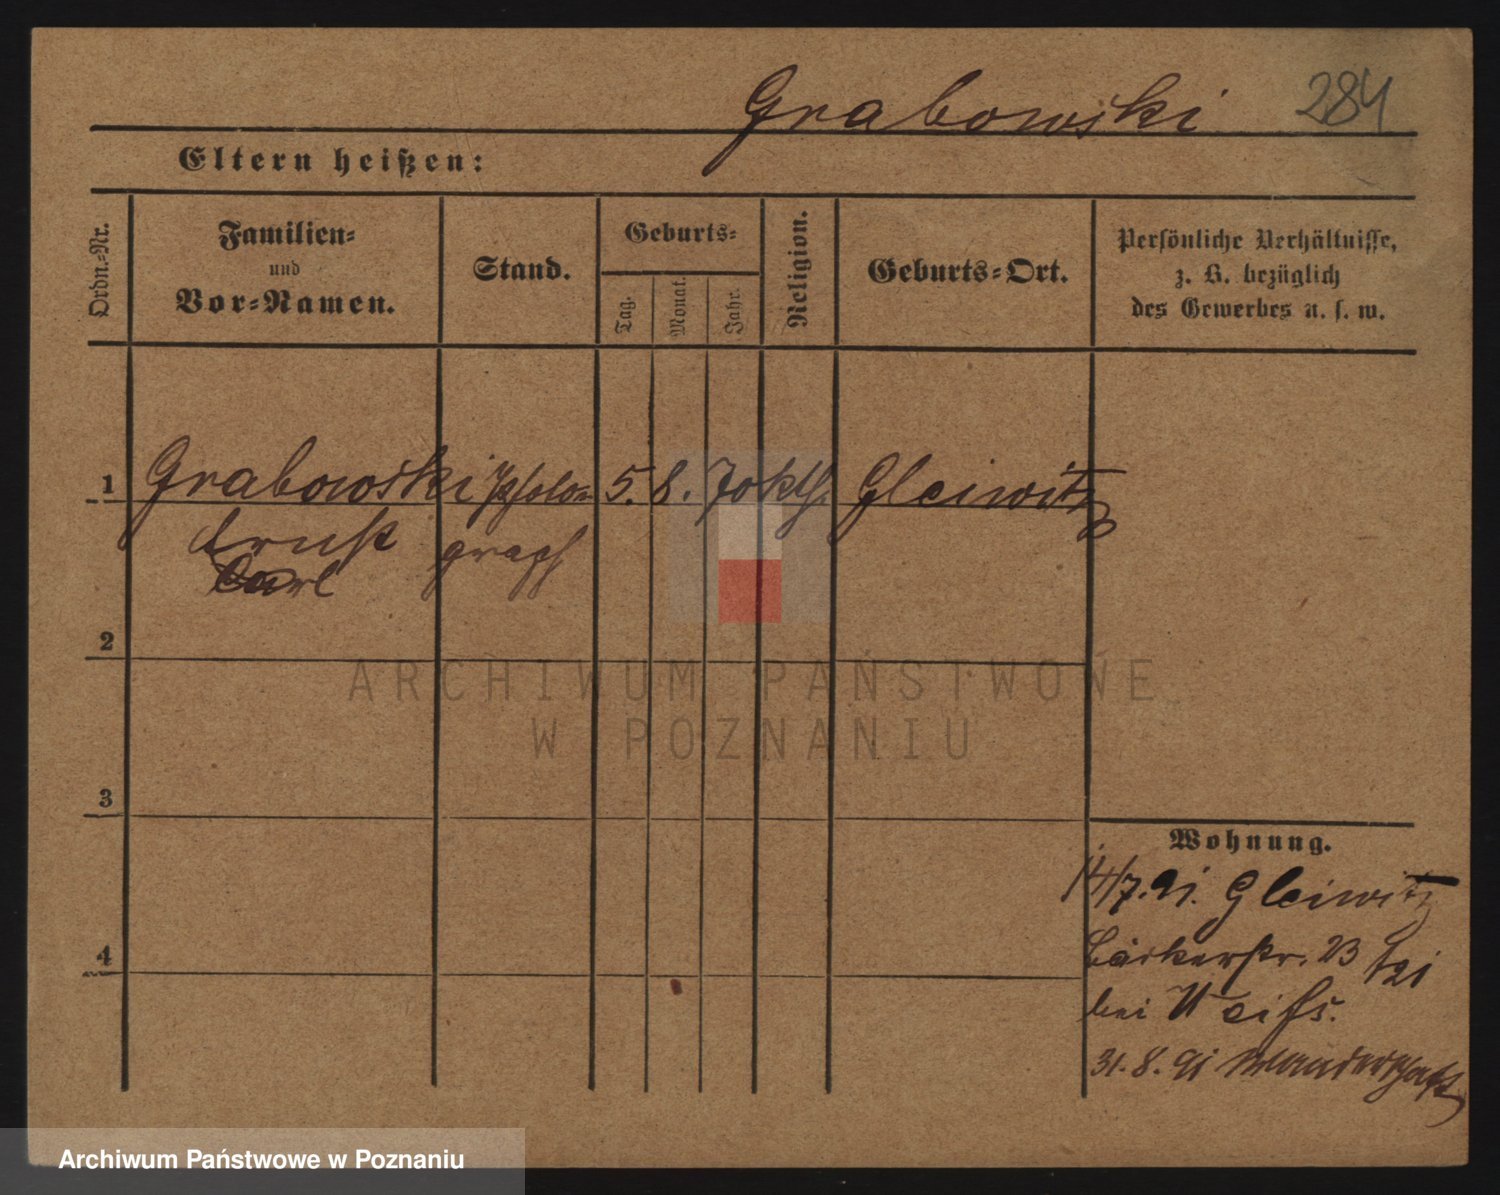 Grabowski 284
Eltern heißen:
Ordn.-Nr.
Familien-
und
Vor-Namen.
Stand.
Geburts-
Tag.
Monat.
Jahr.
Religion.
Geburts-Ort.
Persönliche Verhältnisse,
z. B. bezüglich
des Gewerbes u. s. w.
1 Grabowski 5. 8. 70 kth. Gleiwitz
Ernst graph
Carl
2
3
4
Wohnung.
14/7. 91. Gleiwitz
Bäckerstr. 23
bei Weiß.
31. 8. 91 Wanderschaft
ARCHIWUM PAŃSTWOWE
W POZNANIU
Archiwum Państwowe w Poznaniu